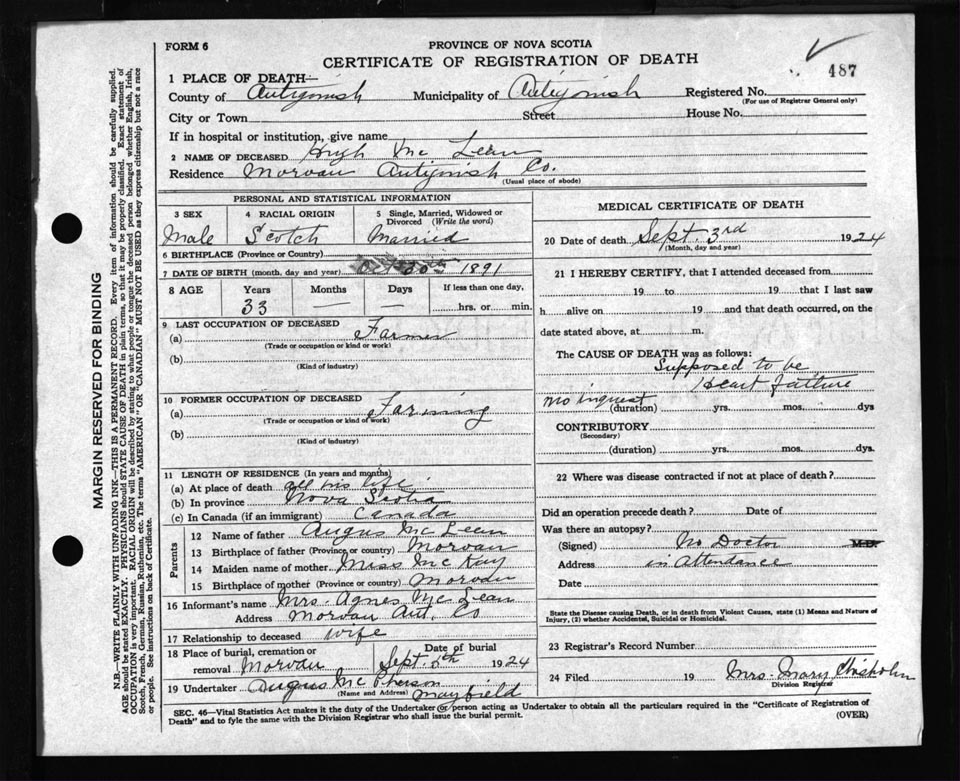 FORM 6
PROVINCE OF NOVA SCOTIA
CERTIFICATE OF REGISTRATION OF DEATH
487
1 PLACE OF DEATH—
County of Antigonish Municipality of Antigonish Registered No.
(For use of Registrar General only)
City or Town Street House No.
If in hospital or institution, give name
2 NAME OF DECEASED Hugh Mc Lean
Residence Morvan Antigonish Co.
(Usual place of abode)
PERSONAL AND STATISTICAL INFORMATION
3 SEX 4 RACIAL ORIGIN 5 Single, Married, Widowed or Divorced (Write the word)
Male Scotch Married
6 BIRTHPLACE (Province or Country)
7 DATE OF BIRTH (month, day and year) 1891
8 AGE Years Months Days If less than one day,
33 — — hrs. or min.
9 LAST OCCUPATION OF DECEASED
(a) Farmer
(Trade or occupation or kind or work)
(b)
(Kind of industry)
10 FORMER OCCUPATION OF DECEASED
(a) Farming
(Trade or occupation or kind of work)
(b)
(Kind of industry)
11 LENGTH OF RESIDENCE (In years and months)
(a) At place of death all his life
(b) In province Nova Scotia
(c) In Canada (if an immigrant) Canada
Parents
12 Name of father Angus Mc Lean
13 Birthplace of father (Province or country) Morvan
14 Maiden name of mother Miss Mc Kay
15 Birthplace of mother (Province or country) Morvan
16 Informant's name Mrs. Agnes Mc Lean
Address Morvan Ant. Co
17 Relationship to deceased wife
18 Place of burial, cremation or removal Morvan
Date of burial Sept. 5th 1924
19 Undertaker Angus Mc Pherson
(Name and Address) Mayfield
MEDICAL CERTIFICATE OF DEATH
20 Date of death Sept. 3rd 1924
(Month, day and year)
21 I HEREBY CERTIFY, that I attended deceased from
19 to 19 that I last saw
h alive on 19 and that death occurred, on the
date stated above, at m.
The CAUSE OF DEATH was as follows:
Supposed to be
Heart failure
no inquest
(duration) yrs. mos. dys
CONTRIBUTORY
(Secondary)
(duration) yrs. mos. dys.
22 Where was disease contracted if not at place of death?
Did an operation precede death? Date of
Was there an autopsy?
(Signed) No Doctor M.D.
Address in attendance
Date
State the Disease causing Death, or in death from Violent Causes, state (1) Means and Nature of
Injury, (2) whether Accidental, Suicidal or Homicidal.
23 Registrar's Record Number
24 Filed 19 Mrs. Mary Chisholm
Division Registrar
SEC. 46—Vital Statistics Act makes it the duty of the Undertaker or person acting as Undertaker to obtain all the particulars required in the "Certificate of Registration of
Death" and to fyle the same with the Division Registrar who shall issue the burial permit.
(OVER)
MARGIN RESERVED FOR BINDING
N.B.—WRITE PLAINLY WITH UNFADING INK—THIS IS A PERMANENT RECORD. Every item of information should be carefully supplied.
AGE should be stated EXACTLY. PHYSICIANS should STATE CAUSE OF DEATH in plain terms, so that it may be properly classified. Exact statement of
OCCUPATION is very important. RACIAL ORIGIN will be described by stating to what people or tongue the deceased person belonged whether English, Irish,
Scotch, French, German, Russian, Ruthenian, etc. The terms "AMERICAN" OR "CANADIAN" MUST NOT BE USED as they express citizenship but not a race
or people. See instructions on back of Certificate.